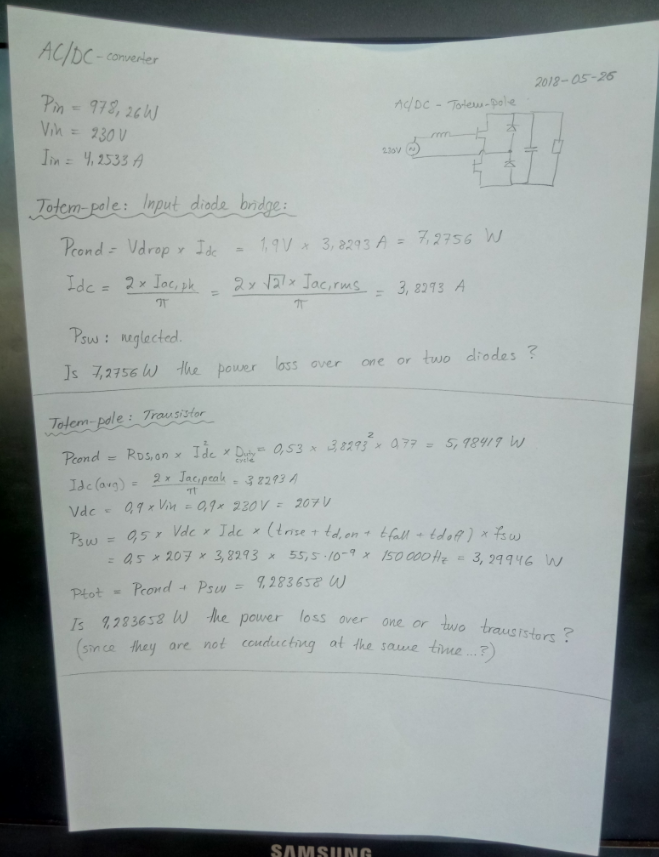 AC/DC-converter
2018-05-26
Pin = 978,26W
Vin = 230V
Iin = 4,2533 A
AC/DC - Totem-pole
230V
Totem-pole: Input diode bridge:
Pcond = Vdrop × Idc = 1,9V × 3,8293 A = 7,2756 W
Idc = 2 × Iac,pk / π = 2 × √2 × Iac,rms / π = 3,8293 A
Psw : neglected.
Is 7,2756W the power loss over one or two diodes?
Totem-pole: Transistor
Pcond = RDS,on × Idc² × Duty cycle = 0,53 × 3,8293² × 0,77 = 5,98419 W
Idc(avg) = 2 × Iac,peak / π = 3,8293A
Vdc = 0,9 × Vin = 0,9 × 230V = 207V
Psw = 0,5 × Vdc × Idc × (trise + td,on + tfall + tdoff) × fsw
= 0,5 × 207 × 3,8293 × 55,5·10⁻⁹ × 150000Hz = 3,29946 W
Ptot = Pcond + Psw = 9,283658 W
Is 9,283658 W the power loss over one or two transistors?
(since they are not conducting at the same time...?)
SAMSUNG